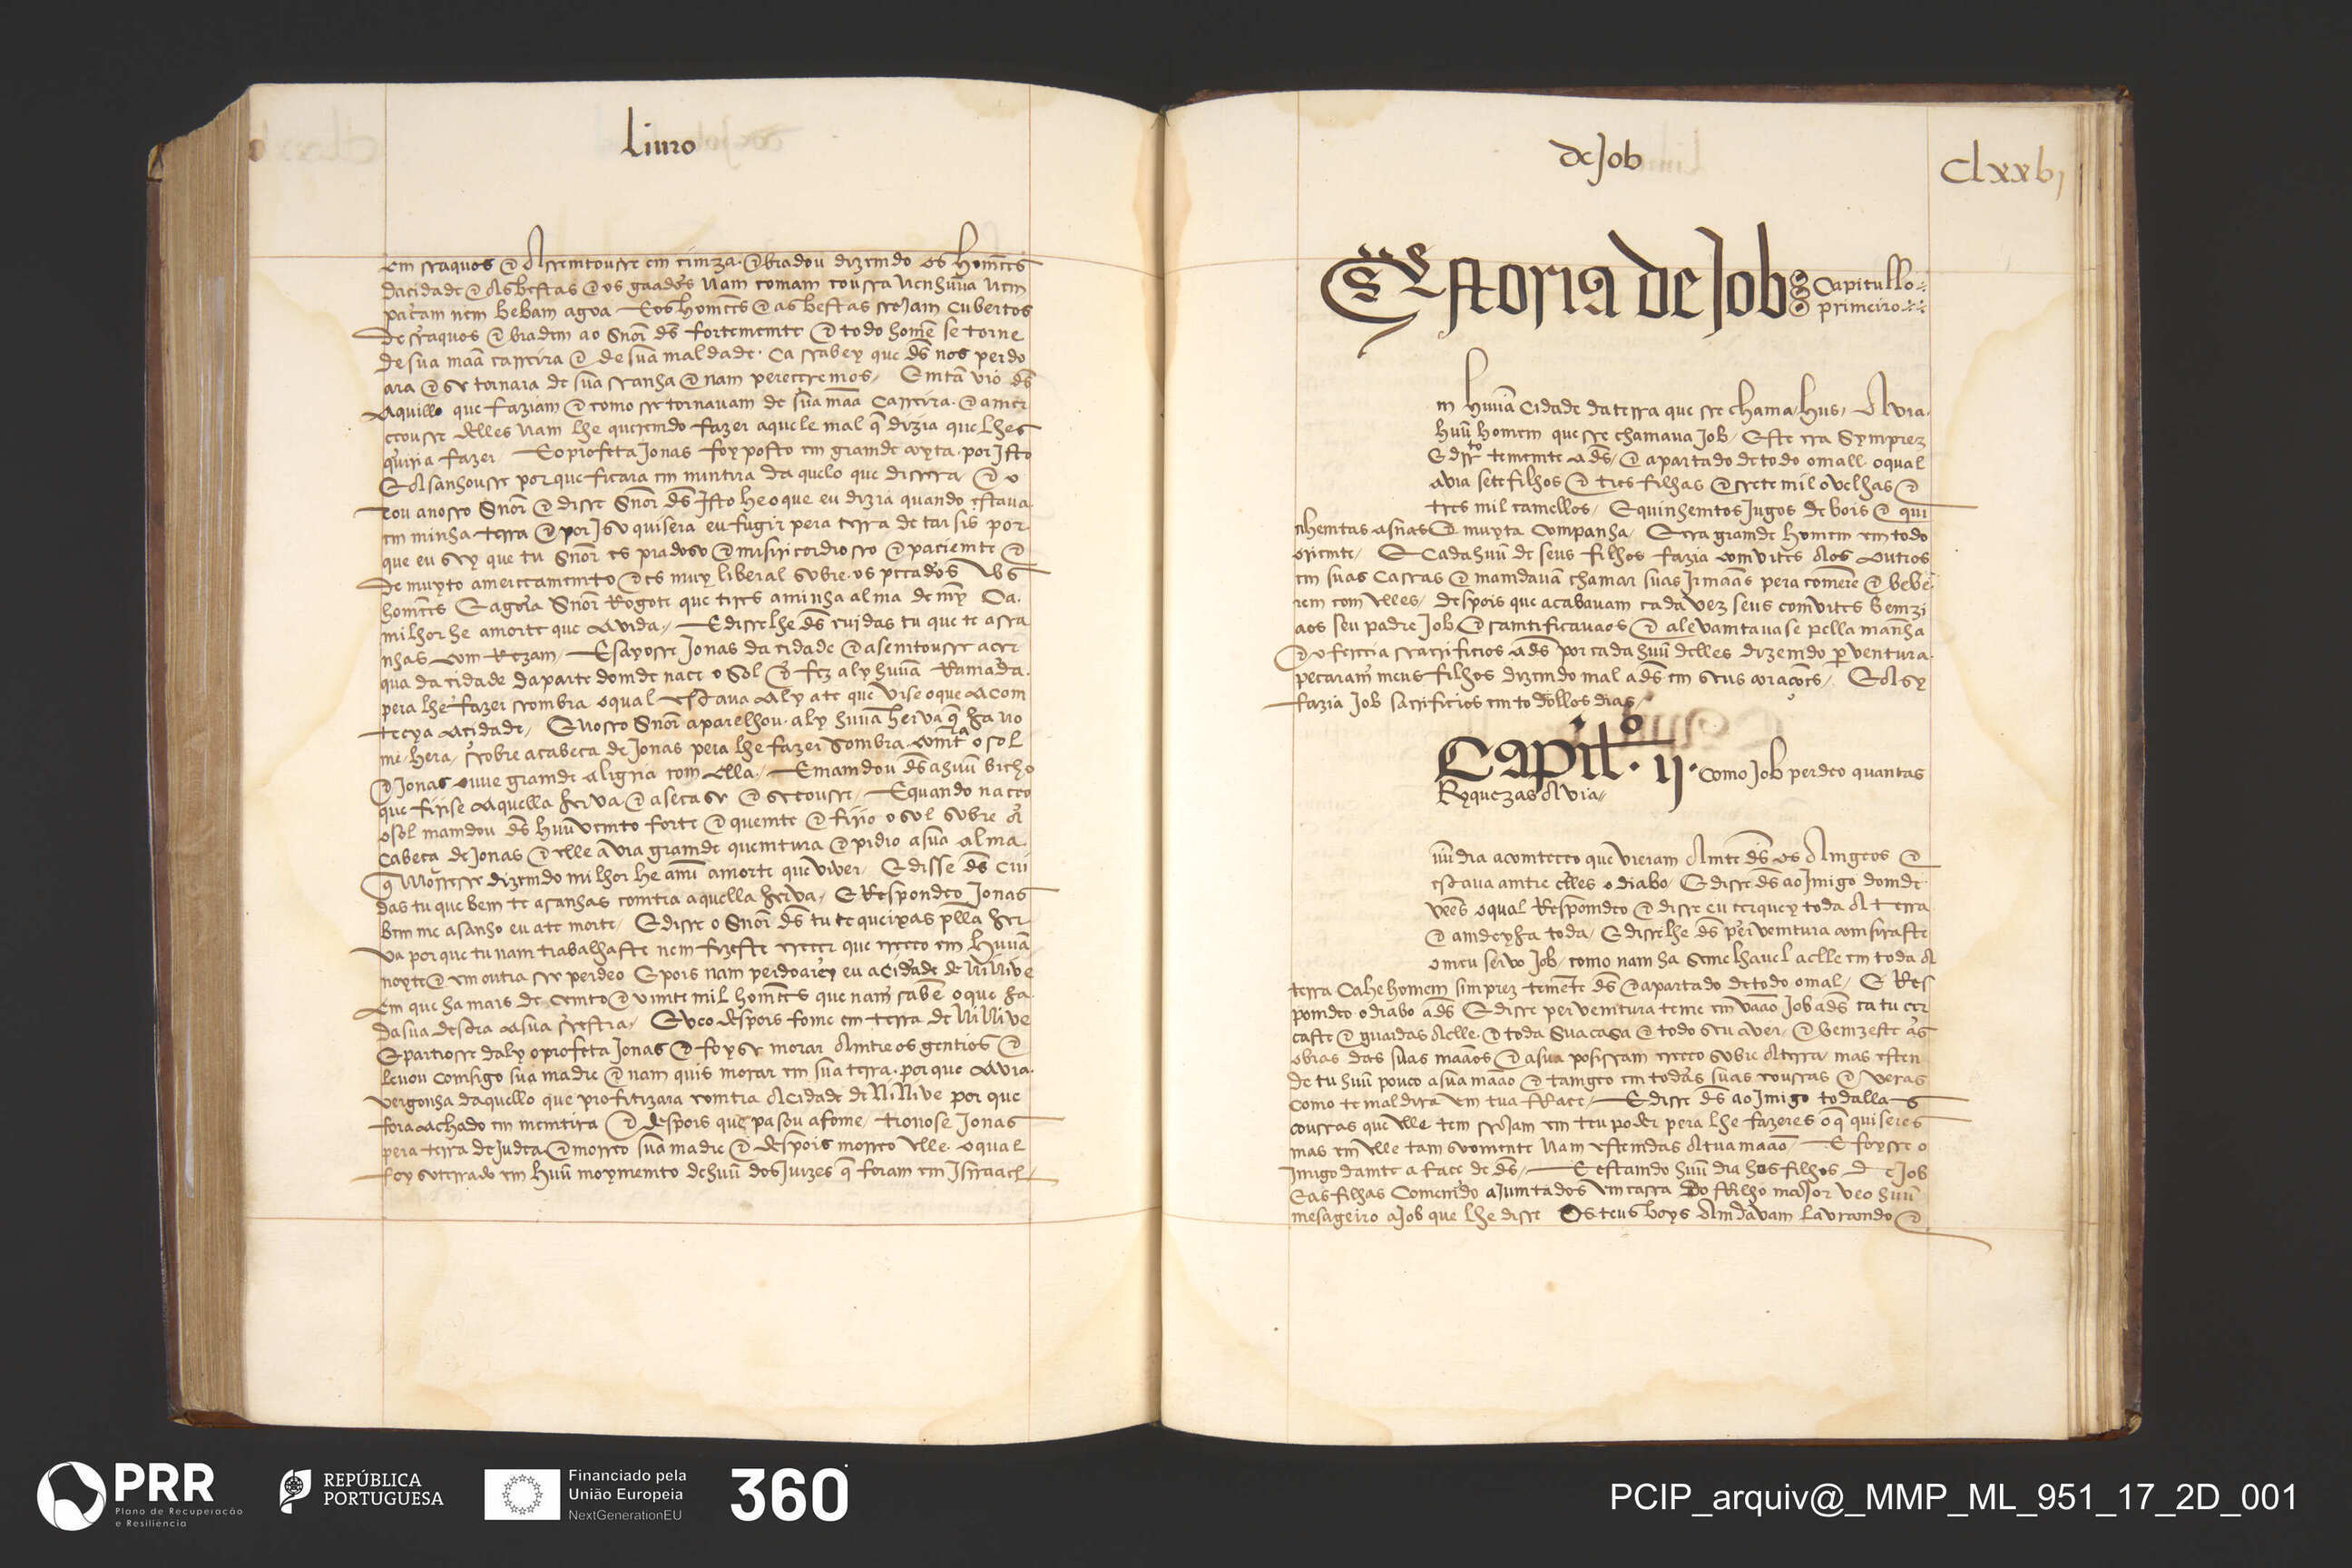 Liuro
em sraquos e Asemtousse em cimza. e bradou dizemdo os homẽes
dacidade e As bestas e os gaados nam comam coussa nenhũua nem
paçam nem bebam agoa E os homẽes e as bestas srejam cubertos
de sraquos e bradem ao Snõr ds̃ fortememte e todo homẽ se torne
de sua maã carreira e de sua maldade. Ca srabey que ds̃ nos perdo
ara e se tornara de sua sranha e nam pereceremos, Emtã vio ds̃
Aquillo que faziam e como sse tornauam de sua maã Carreira. e amer
ceousse delles nam lhe queremdo fazer aquele mal q̃ dizia que lhes
queria fazer E o profeta Jonas foy posto em gramde coyta. por Isto
E Asanhousse por que ficara em mintira da quelo que dissera e o
rou a nosso Snõr e disse Snõr ds̃ Isto he o que eu dizia quando estaua
em minha terra e por Iso quisera eu fugir pera terra de tarsis por
que eu sey que tu Snõr es piadoso e misiricordiosso e paciemte e
de muyto amerceamemto e es muy liberal sobre os pecados dos
homẽes E agora Snõr Rogote que tires a minha alma de my Ca
milhor he a morte que a vida, E disse lhe ds̃ cuidas tu que te assa
nhas com Rezam, E sayosse Jonas da cidade e asemtousse acer
qua da cidade da parte domde nace o Sol e fez aly hũua Ramada
pera lhe fazer sombra o qual estaua aly ate que vise o que acom
tecya a cidade, E nosso Snõr aparelhou aly hũua herva q̃ ha no
me hera, sobre a cabeca de Jonas pera lhe fazer sombra comtra o sol
e Jonas ouue gramde aligria com ella, E mamdou ds̃ a huũ bicho
que firise aquella herva e a secase e secousse, E quando naceo
o sol mamdou ds̃ huũ vemto forte e quemte e firio o sol sobre A
Cabeca de Jonas e elle avia gramde quemtura e pidio a sua alma
q̃ Morresse dizemdo milhor he a mi a morte que viver, E disse ds̃ Cui
das tu que bem te asanhas comtra aquella herva, E Respondeo Jonas
bem me asanho eu ate morte, E disse o Snõr ds̃ tu te queixas pella her
va por que tu nam trabalhaste nem fizeste crecer que creceo em hũua
noyte e em outra se perdeo E pois nam perdoarey eu a cidade de Ninive
em que ha mais de cemto e vimte mil homẽes que nam sabẽ o que ha
da sua destra a sua sestra, E veo despois fome em terra de Ninive
E partiosse daly o profeta Jonas e foyse morar Amtre os gentios e
levou comsigo sua madre e nam quis morar em sua terra. por que Avia
vergonha daquello que profitizara comtra A Cidade de Ninive por que
fora achado em memtira e despois que pasou a fome, tornose Jonas
pera terra de Judea e morreo sua madre e despois morreo elle. o qual
foy soterrado em huũ moymento de huũ dos Juizes q̃ foram em Isrraael
de Job
Clxxbj
Estoria de Job Capitullo
primeiro
m hũua Cidade da terra que sse chama, hus, Avia
huũ homem que sse chamaua Job, Este era Symprez
E dirrto tememte a ds̃, e apartado de todo o mall. o qual
avia sete filhos e tres filhas e sete mil ovelhas e
tres mil camellos, E quinhemtos Jugos de bois e qui
nhemtas asnas e muyta Companha, E era gramde homem em todo
oriemte, E Cada huũ de seus filhos fazia comvites Aos outros
em suas Cassas e mamdauã chamar suas Irmaãs pera comerẽ e bebe
rem com elles, despois que acabauam cada vez seus comvites bemzi
aos seu padre Job e samtificauaos e alevamtauase pella manhã
e oferecia sacrificios a ds̃ por cada huũ delles dizemdo per ventura
pecaram meus filhos dizemdo mal a ds̃ em seus coracoẽs, E Asy
fazia Job sacrificios em todollos dias,
Capit.º ij. Como Job perdeo quantas
Ryquezas Avia
uũ dia acomteceo que vieram Amte ds̃ os Amgeos e
estaua amtre elles o diabo, E disse ds̃ ao Imigo domde
veẽs o qual Respomdeo e disse eu cerquey toda A terra
e amdey ha toda, E disse lhe ds̃ per vemtura comsiraste
o meu servo Job, como nam ha semelhauel a elle em toda A
terra Ca he homem simprez temẽte ds̃ e apartado de todo o mal, E Res
pomdeo o diabo a ds̃ E disse per vemtura teme em vaão Job a ds̃ ca tu cer
caste e guardas A elle. e toda sua casa e todo seu aver, e bemzeste as
obras das suas maãos e a sua posissam creceo sobre A terra, mas esten
de tu huũ pouco a sua maão e tamgeo em todas suas coussas e veras
Como te maldira em tua fface, E disse ds̃ ao Imigo todallas
coussas que elle tem srejam em teu poder pera lhe fazeres o q̃ quiseres
mas em elle tam somente nam estemdas A tua maão E foysse o
Imigo damte a face de ds̃, E estamdo huũ dia hos filhos de Job
E as filhas Comemdo ajumtados em cassa do ffilho major veo huũ
mesageiro a Job que lhe disse Os teus boys Amdavam lavramdo e
PRR
Plano de Recuperação
e Resiliência
REPÚBLICA
PORTUGUESA
Financiado pela
União Europeia
NextGenerationEU
360
PCIP_arquiv@_MMP_ML_951_17_2D_001